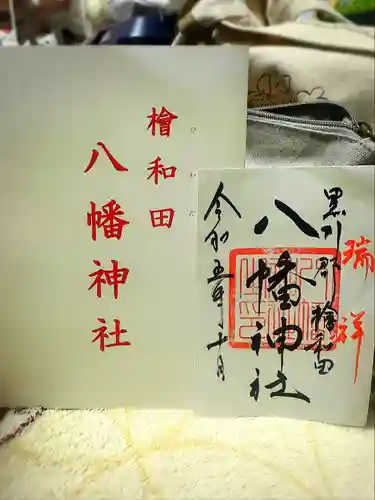 檜和田
ひわだ
八幡神社
瑞祥
黒川郡檜和田
八幡神社
令和五年十一月